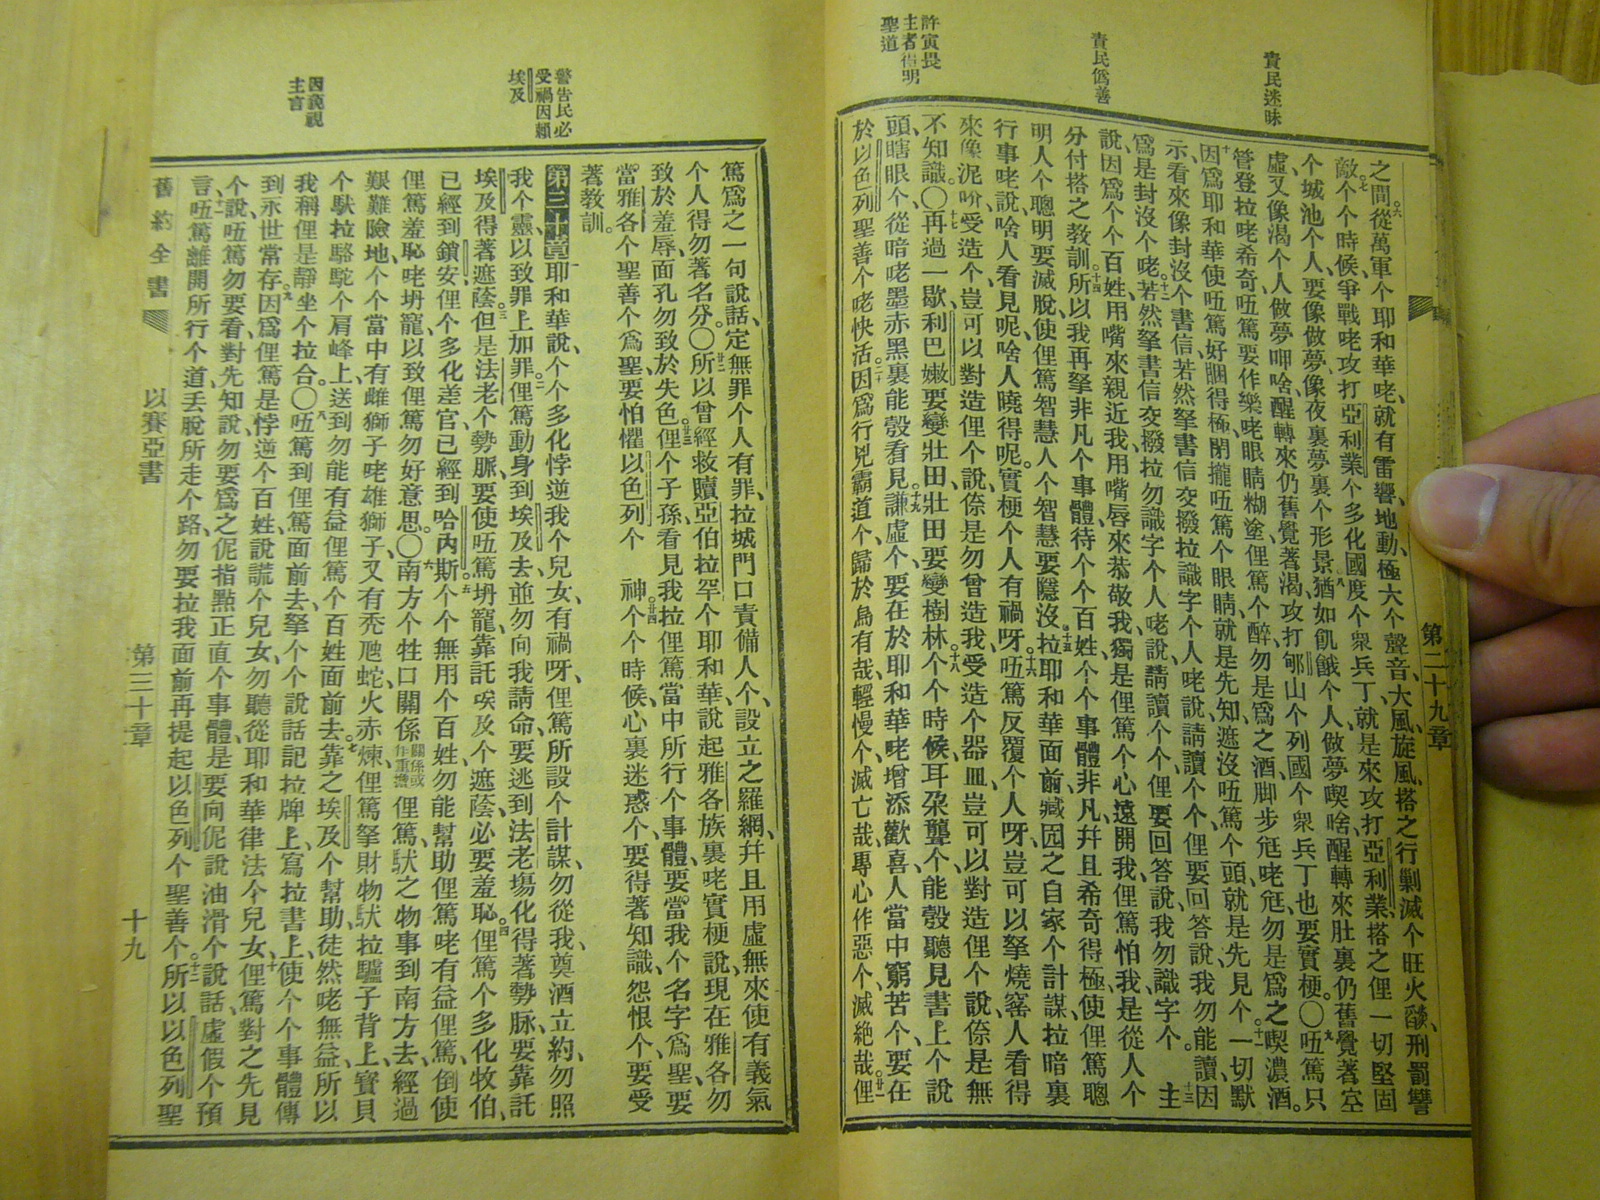 責民迷昧
責民僞善
許寅畏
主者得明
聖道
第二十九章
之間從萬軍个耶和華咾就有雷響地動極大个聲音大風旋風搭之行剿滅个旺火燄刑罰讐
敵个个時候爭戰咾攻打亞利業个多化國度个衆兵丁就是來攻打亞利業搭之俚一切堅固
个城池个人要像做夢像夜裏夢裏个形景猶如飢餓个人做夢喫啥醒轉來肚裏仍舊覺著空
虛又像渴个人做夢呷啥醒轉來仍舊覺著渴攻打郇山个列國个衆兵丁也要實梗〇𠵽篤只
管登拉咾希奇𠵽篤要作樂咾眼睛糊塗俚篤个醉勿是爲之酒脚步𡯓咾𡯓勿是爲之喫濃酒
因爲耶和華使𠵽篤好睏得極閉攏𠵽篤个眼睛就是先知遮沒𠵽篤个頭就是先見个一切默
示看來像封沒个書信若然拏書信交撥拉識字个人咾說請讀个个俚要回答說我勿能讀因
爲是封沒个咾若然拏書信交撥拉勿識字个人咾說請讀个个俚要回答說我勿識字个 主
說因爲个个百姓用嘴來親近我用嘴唇來恭敬我獨是俚篤个心遠開我俚篤怕我是從人个
分付搭之教訓所以我再拏非凡个事體待个个百姓个个事體非凡幷且希奇得極使俚篤聰
明人个聰明要滅脫使俚篤智慧人个智慧要隱沒拉耶和華面前藏囥之自家个計謀拉暗裏
行事咾說啥人看見呢啥人曉得呢實梗个人有禍呀𠵽篤反覆个人呀豈可以拏燒窰人看得
來像泥吤受造个豈可以對造俚个說倷是勿曾造我受造个器皿豈可以對造俚个說倷是無
不知識〇再過一歇利巴嫩要變壯田壯田要變樹林个个時候耳朶聾个能彀聽見書上个說
頭瞎眼个從暗咾墨赤黑裏能彀看見謙虛个要在於耶和華咾增添歡喜人當中窮苦个要在
於以色列聖善个咾快活因爲行兇霸道个歸於烏有哉輕慢个滅亡哉專心作惡个滅絶哉俚
警告民必
受禍因賴
埃及
因藐視
主言
篤爲之一句說話定無罪个人有罪拉城門口責備人个設立之羅網幷且用虛無來使有義氣
个人得勿著名分〇所以曾經救贖亞伯拉罕个耶和華說起雅各族裏咾實梗說現在雅各勿
致於羞辱面孔勿致於失色俚个子孫看見我拉俚篤當中所行个事體要當我个名字爲聖要
當雅各个聖善个爲聖要怕懼以色列个 神个个時候心裏迷惑个要得著知識怨恨个要受
著教訓
第三十章耶和華說个个多化悖逆我个兒女有禍呀俚篤所設个計謀勿從我奠酒立約勿照
我个靈以致罪上加罪俚篤動身到埃及去並勿向我請命要逃到法老塲化得著勢脉要靠託
埃及得著遮蔭但是法老个勢脈要使𠵽篤坍寵靠託埃及个遮蔭必要羞恥俚篤个多化牧伯
已經到鎖安俚个多化差官已經到哈內斯个个無用个百姓勿能幫助俚篤咾有益俚篤倒使
俚篤羞恥咾坍寵以致俚篤勿好意思〇南方个牲口關係關係或作重擔俚篤䭾之物事到南方去經過
艱難險地个个當中有雌獅子咾雄獅子又有禿虺蛇火赤煉俚篤拏財物䭾拉驢子背上寶貝
个䭾拉駱駝个肩峰上送到勿能有益俚篤个百姓面前去靠之埃及个幫助徒然咾無益所以
我稱俚是靜坐个拉合〇𠵽篤到俚篤面前去拏个个說話記拉牌上寫拉書上使个个事體傳
到永世常存因爲俚篤是悖逆个百姓說謊个兒女勿聽從耶和華律法个兒女俚篤對之先見
个說𠵽篤勿要看對先知說勿要爲之伲指點正直个事體是要向伲說油滑个說話虛假个預
言𠵽篤離開所行个道丟脫所走个路勿要拉我面前再提起以色列个聖善个所以以色列聖
舊約全書
以賽亞書
第三十章
十九